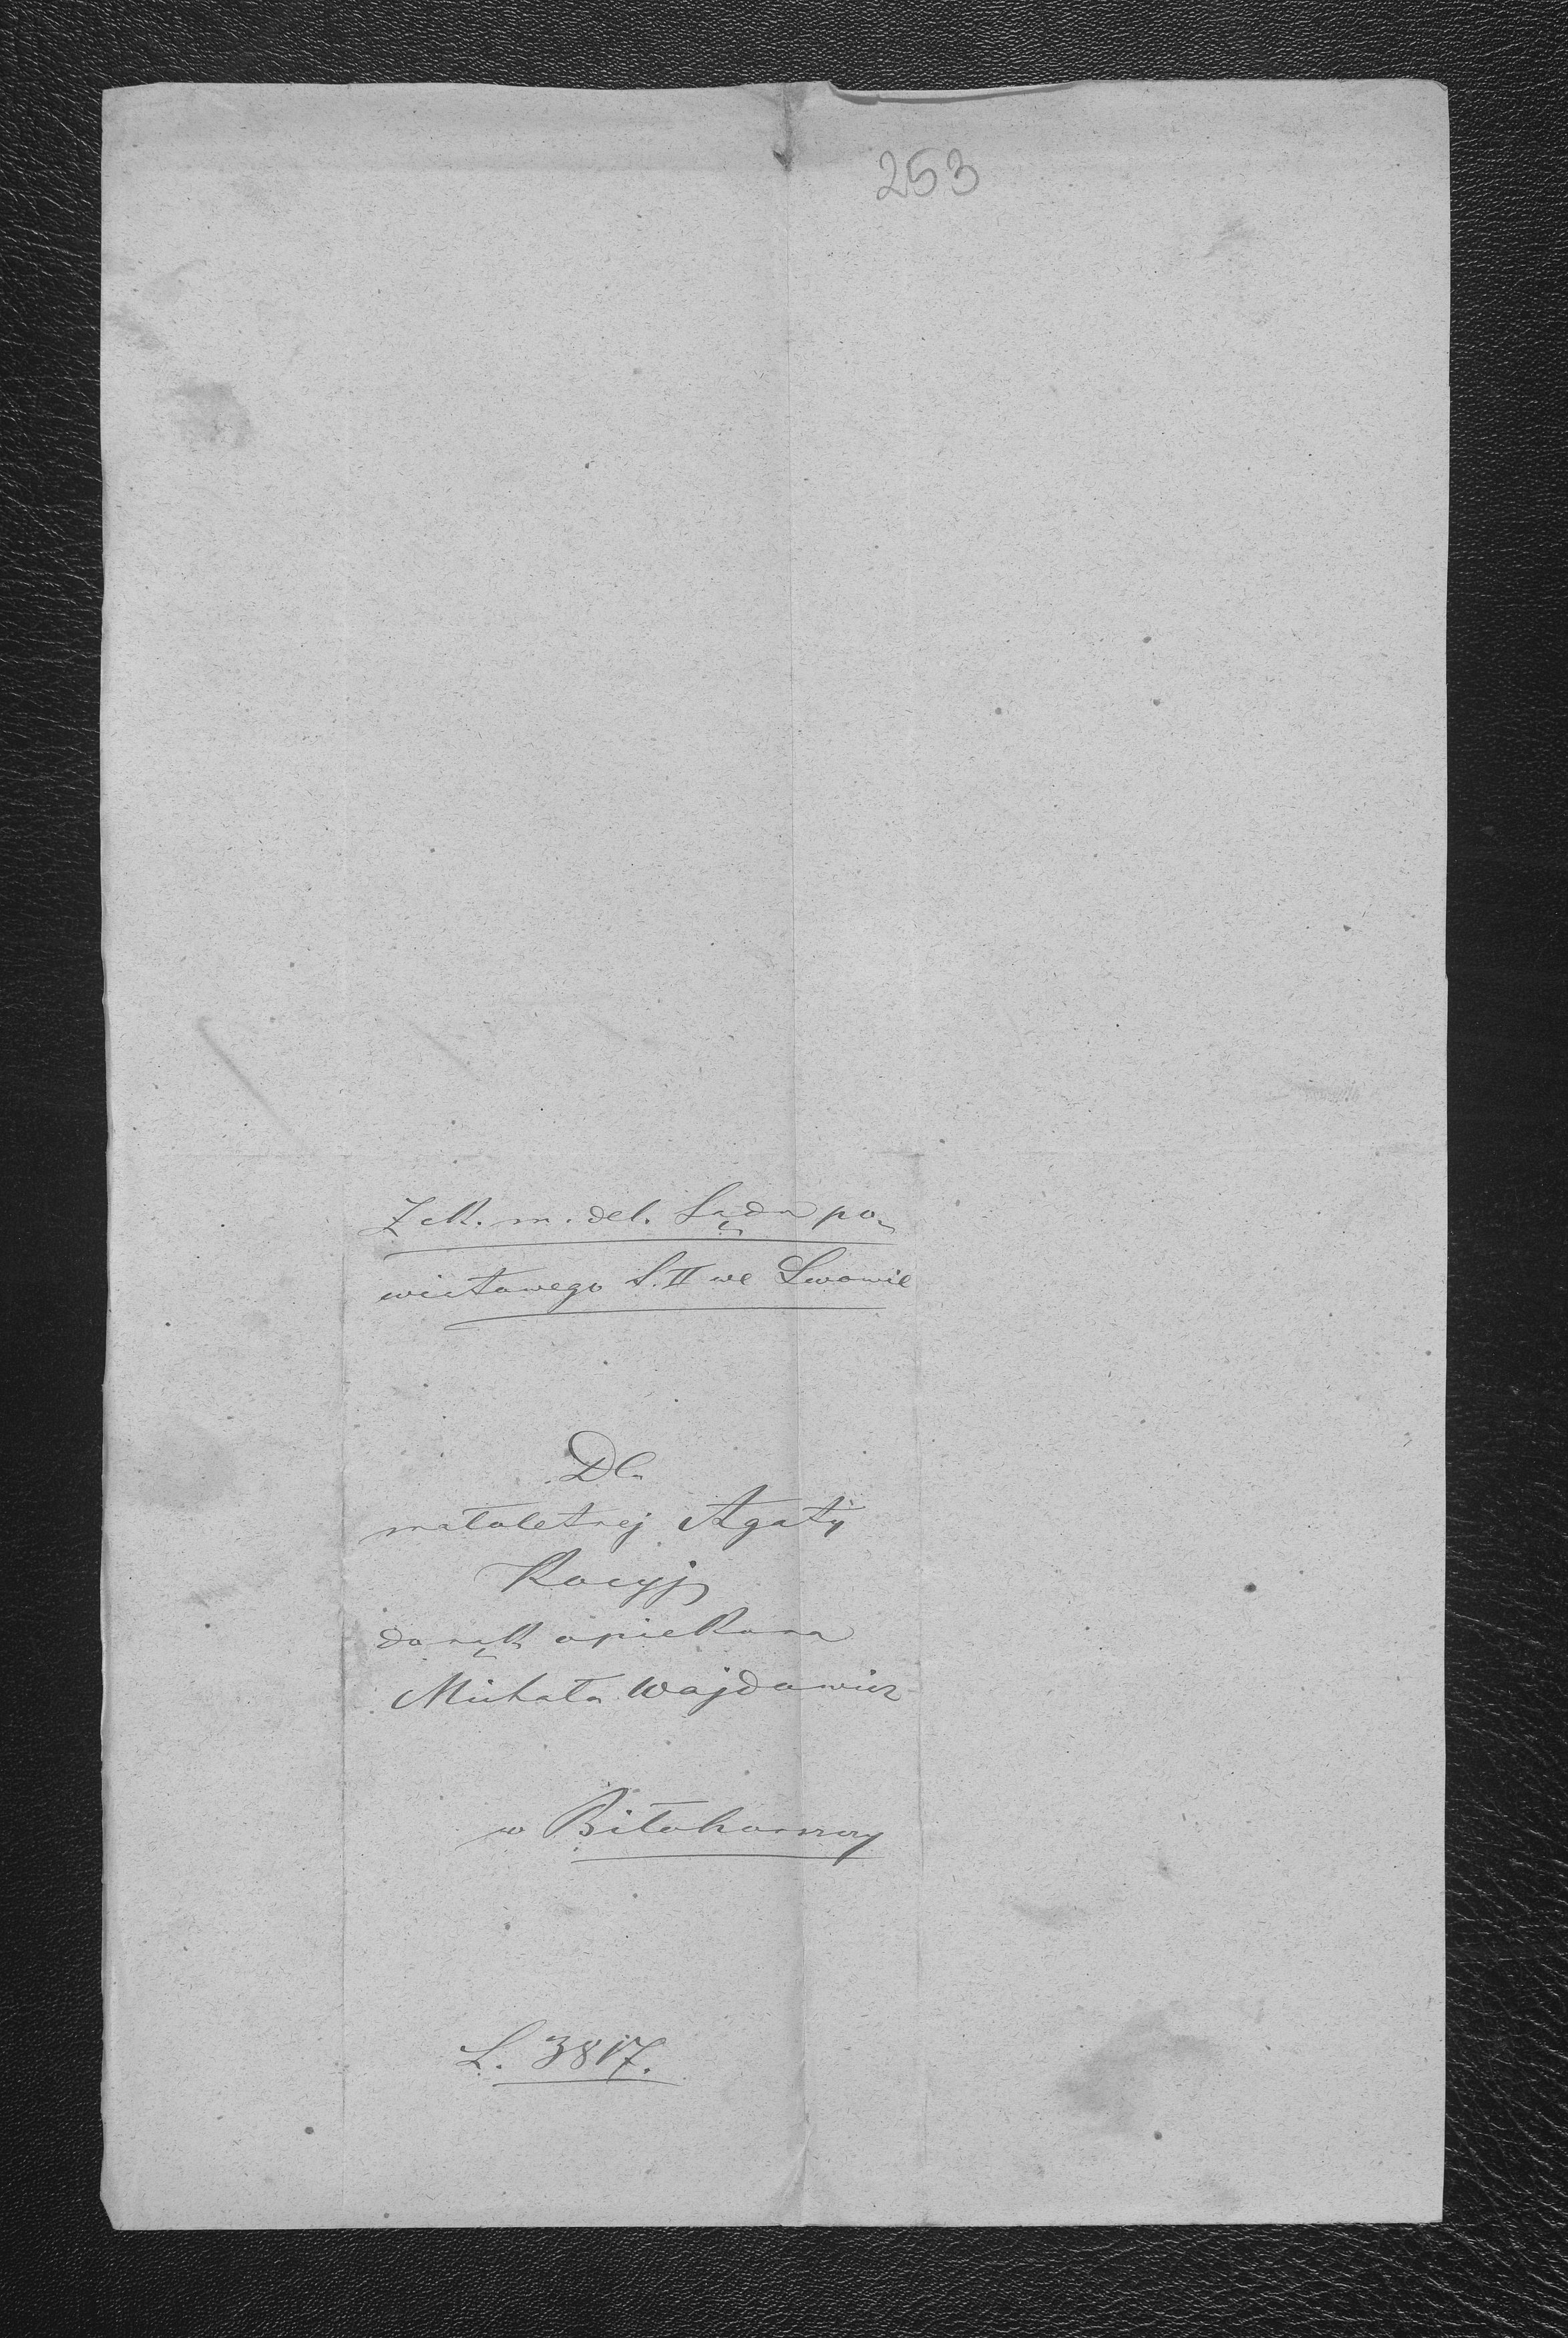 253
Z ck. m. del. Sądu po-
wiatowego S. II we Lwowie
Dla
małoletniej Agaty
Kocyj
do rąk opiekuna
Michała Wojdowicz
w Biłohorszczy
L. 3817.